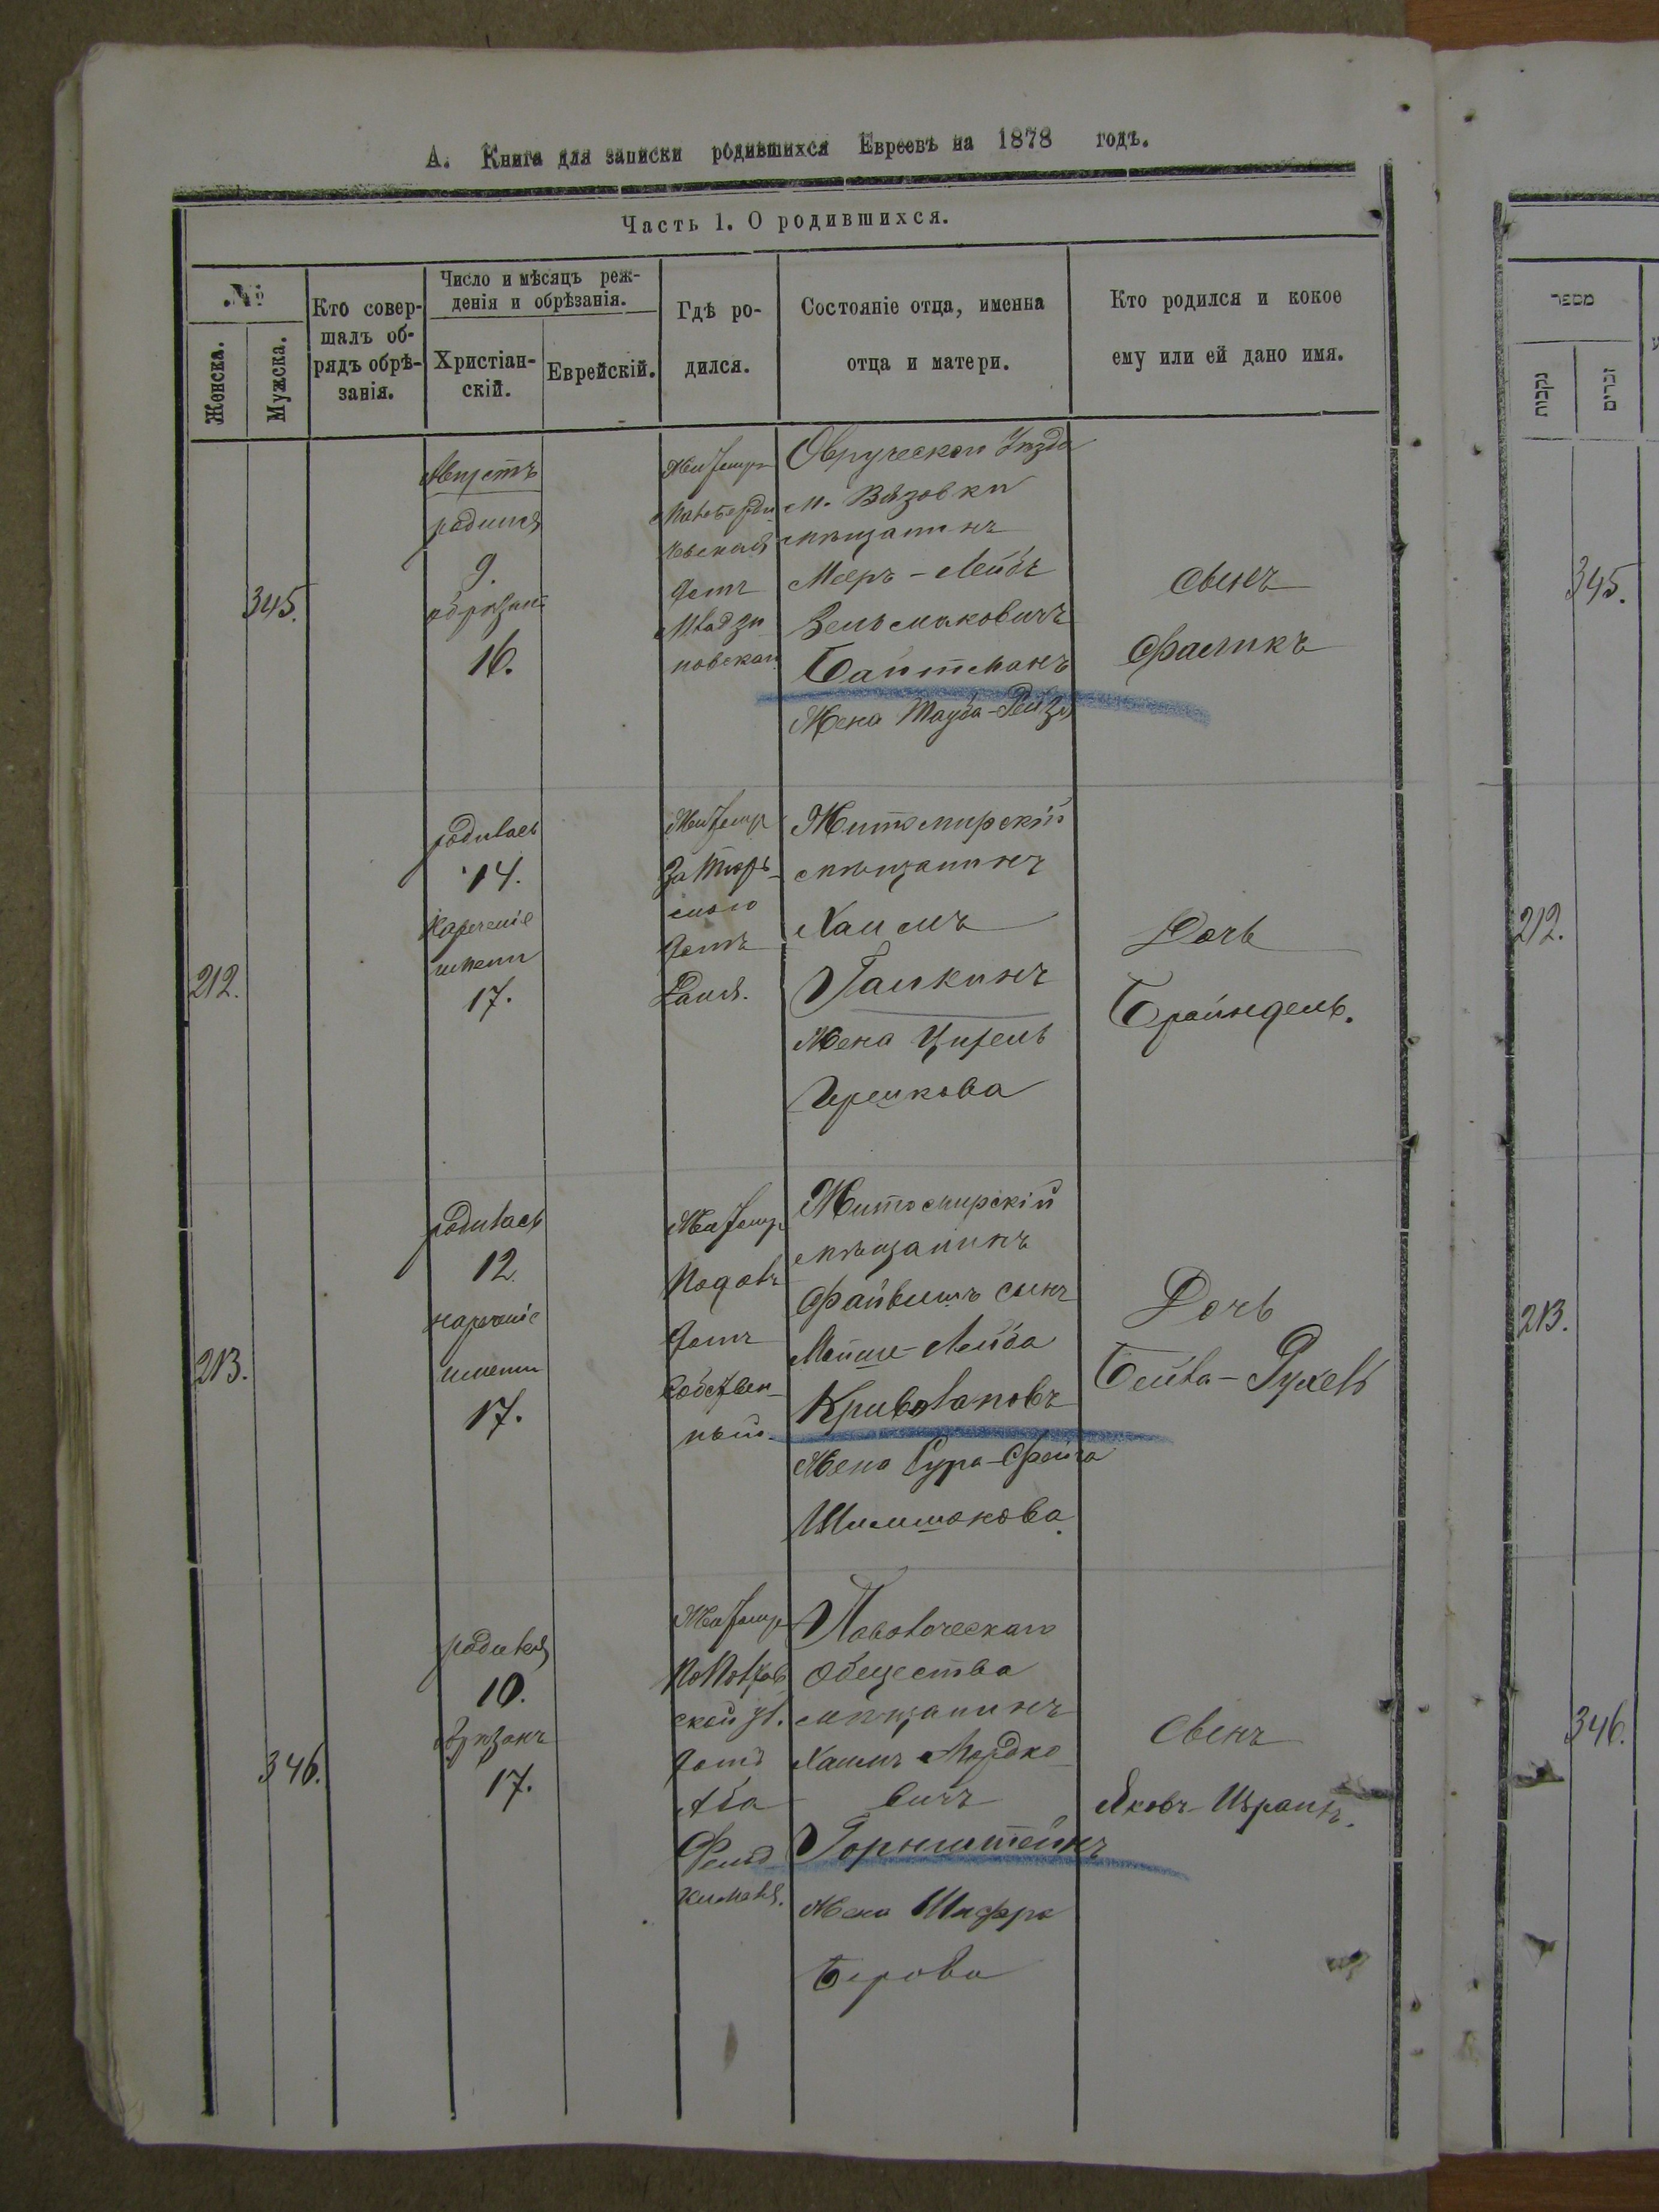 А. Книга для записки родившихся Евреевъ на 1878 годъ.
Часть 1. О родившихся.
№
Женска.
Мужска.
Кто совер-
шалъ об-
рядъ обрѣ-
занія.
Число и мѣсяцъ реж-
денія и обрѣзанія.
Христіан-
скій.
Еврейскій.
Гдѣ ро-
дился.
Состояніе отца, именна
отца и матери.
Кто родился и кокое
ему или ей дано имя.
345.
Августъ
родился
9.
обрѣзанъ
16.
Житомиръ
домъ
Овручскаго Уѣзда
м. Вязовки
мѣщанинъ
Мееръ-Лейбъ
Зельмановичъ
Байтманъ
Жена Тауба-Рейзя
Сынъ
Фаликъ
212.
родилась
14.
Нареченіе
имени
17.
Житомир
домъ
Житомирскій
мѣщанинъ
Хаимъ
Галкинъ
ЖенаЦипель
Гершкова
Дочь
Брайндель.
213.
родилась
12.
нареченіе
имени
17.
Житомир
домъ
Собствен-
ный.
Житомирскій
мѣщанинъ
Файвишъ сынъ
Мойше-Лейба
Криволаповъ
Жена Сура-Фейга
Шимшакова
Дочь
Бейла-Рухель
346.
родился
10.
обрѣзанъ
17.
Житомир
ской ул.
домъ
Аба
Фельд
Паволоческаго
общества
мѣщанинъ
Хаимъ Мордко
вичъ
Горнштейнъ
Жена Шифра
Берова
Сынъ
Яковъ-Израиль.
מספר
נקבות
זכרים
345.
212.
213.
346.